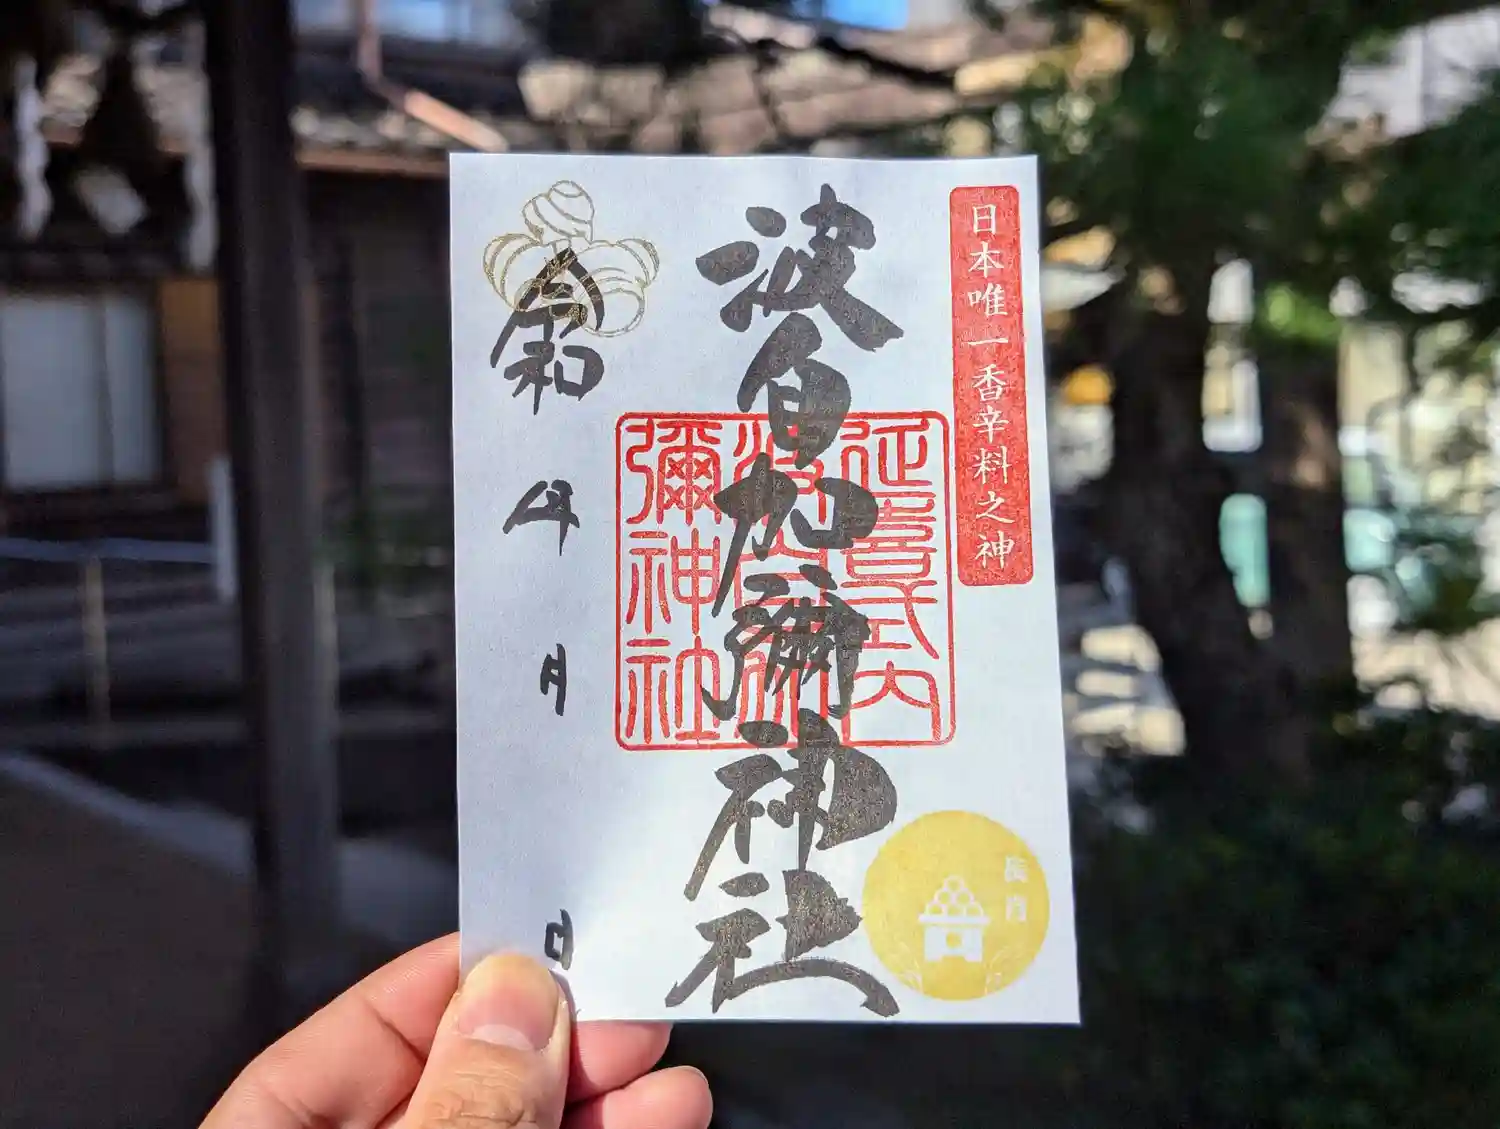 日本唯一香辛料之神
波自加彌神社
延喜式内
波自加
彌神社
令和 年 月 日
長月